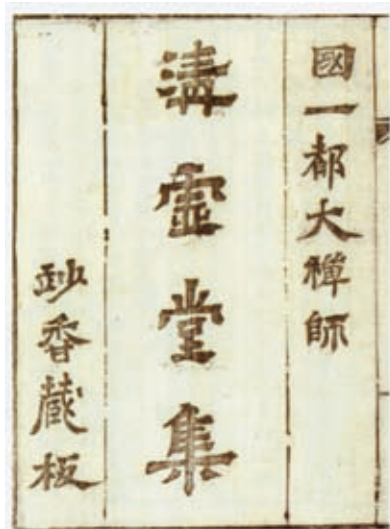 國一都大禪師
清虛堂集
妙香藏板